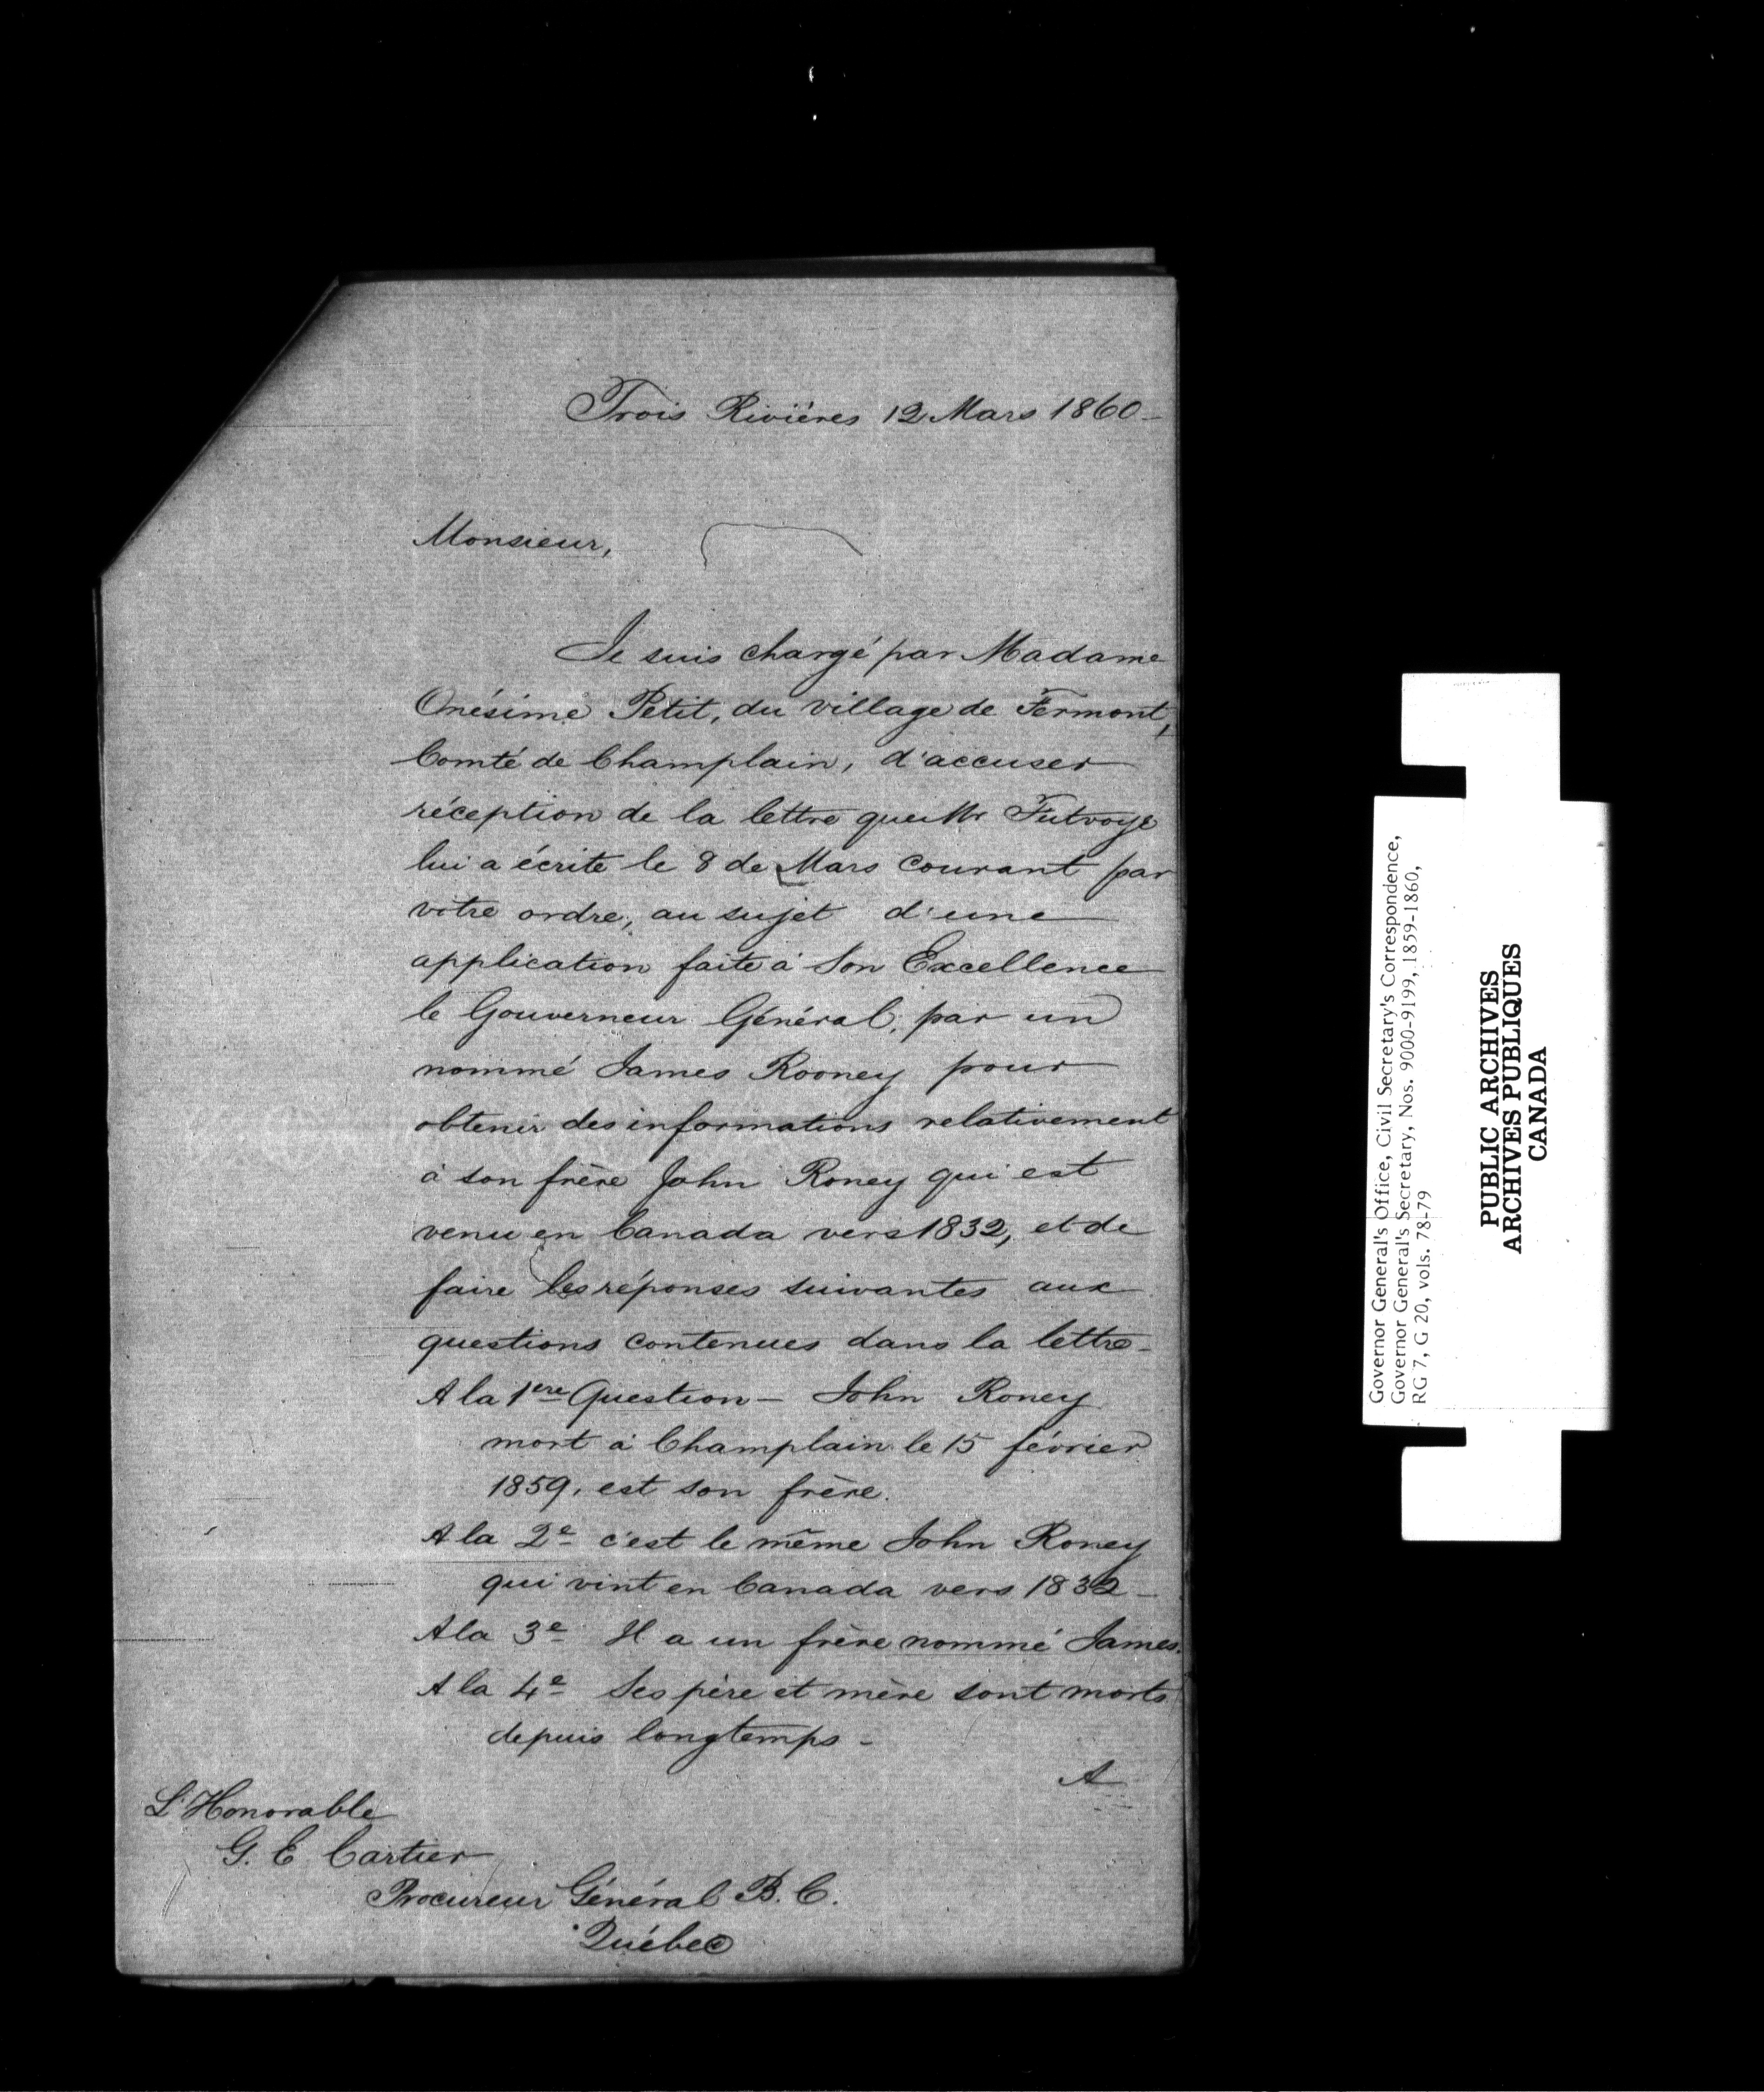 Trois Rivières 12 Mars 1860 -
Monsieur,
Je suis chargé par Madame
Onésime Petit, du village de Fermont,
Comté de Champlain, d'accuser
réception de la lettre que Mr Futvoye
lui a écrite le 8 de Mars courant par
votre ordre, au sujet d'une
application faite à Son Excellence
le Gouverneur Général, par un
nommé James Rooney pour
obtenir des informations relativement
à son frère John Roney qui est
venu en Canada vers 1832, et de
faire les réponses suivantes aux
questions contenues dans la lettre -
A la 1ere Question - John Roney
mort à Champlain le 15 février
1859, est son frère.
A la 2e c'est le même John Roney
qui vint en Canada vers 1832 -
A la 3e Il a un frère nommé James.
A la 4e Ses père et mère sont morts
depuis longtemps -
A
L'Honorable
G. E Cartier
Procureur Général B. C.
Québec
Governor General's Office, Civil Secretary's Correspondence,
Governor General's Secretary, Nos. 9000-9199, 1859-1860,
RG 7, G 20, vols. 78-79
PUBLIC ARCHIVES
ARCHIVES PUBLIQUES
CANADA